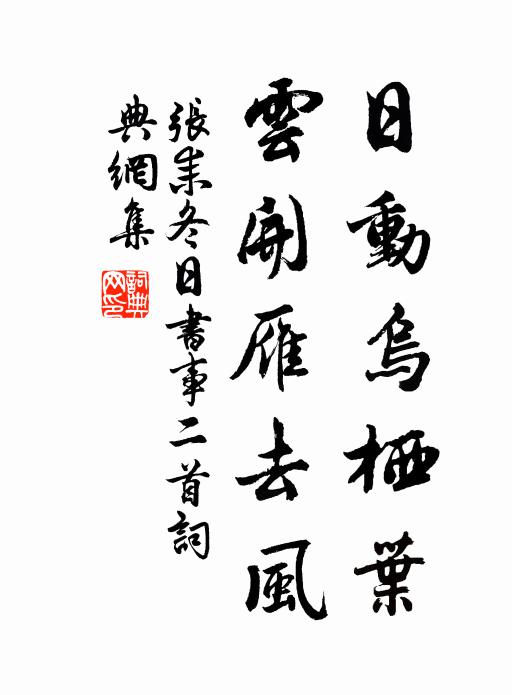 日動烏栖葉
雲開雁去風
張耒冬日書事二首詞
典網集
詞典
网印